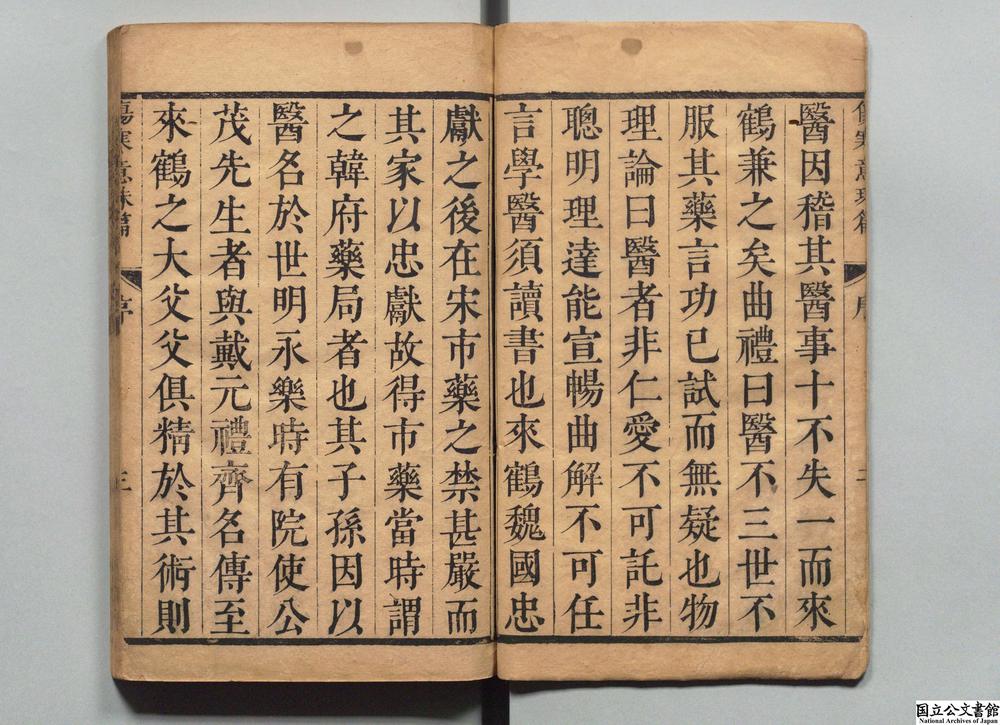 醫因稽其醫事十不失一而來
鶴兼之矣曲禮曰醫不三世不
服其藥言功已試而無疑也物
理論曰醫者非仁愛不可託非
聰明理達能宣暢曲解不可任
言學醫須讀書也來鶴魏國忠
獻之後在宋市藥之禁甚嚴而
其家以忠獻故得市藥當時謂
之韓府藥局者也其子孫因以
醫名於世明永樂時有院使公
茂先生者與戴元禮齊名傳至
來鶴之大父父俱精於其術則
傷寒意珠篇
序
三
国立公文書館
National Archives of Japan